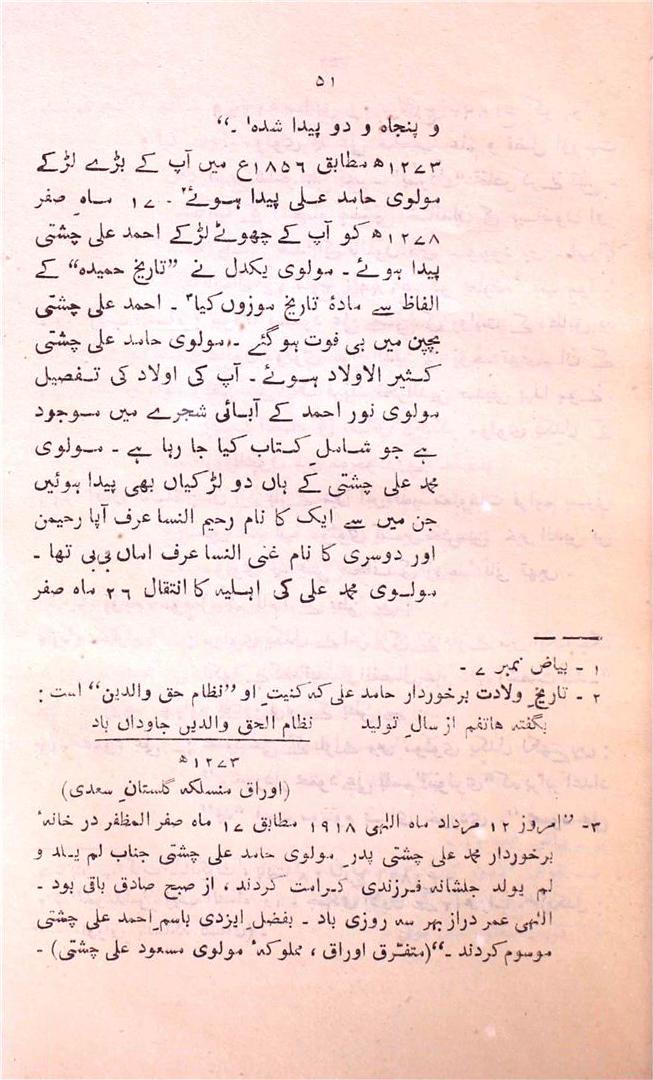 ۵۱
و پنجاہ و دو پیدا شدہ۱ ۔“
۱۲۷۳ھ مطابق ۱۸۵۶ع میں آپ کے بڑے لڑکے
مولوی حامد علی پیدا ہوئے۲ ۔ ۱۷ ماہِ صفر
۱۲۷۸ھ کو آپ کے چھوٹے لڑکے احمد علی چشتی
پیدا ہوئے ۔ مولوی یکدل نے ”تاریخ حمیدہ“ کے
الفاظ سے مادۂ تاریخ موزوں کیا۳ ۔ احمد علی چشتی
بچپن میں ہی فوت ہو گئے ۔ مولوی حامد علی چشتی
کثیر الاولاد ہوئے ۔ آپ کی اولاد کی تفصیل
مولوی نور احمد کے آبائی شجرے میں موجود
ہے جو شاملِ کتاب کیا جا رہا ہے ۔ مولوی
محمد علی چشتی کے ہاں دو لڑکیاں بھی پیدا ہوئیں
جن میں سے ایک کا نام رحیم النسا عرف آپا رحیمن
اور دوسری کا نام غنی النسا عرف اماں بی بی تھا ۔
مولوی محمد علی کی اہلیہ کا انتقال ۲۶ ماہ صفر
۱ ۔ بیاض نمبر ۷ ۔
۲ ۔ تاریخِ ولادت برخوردار حامد علی کہ کنیتِ او ”نظام حق والدین“ است :
بگفتہ ہاتفم از سالِ تولید نظام الحق والدیں جاوداں باد
۱۲۷۳ھ
(اوراق منسلکہ گلستانِ سعدی)
۳ ۔ ”امروز ۱۲ مرداد ماہ الٰہی ۱۹۱۸ مطابق ۱۷ ماہ صفر المظفر در خانۂ
برخوردار محمد علی چشتی پدرِ مولوی حامد علی چشتی جناب لم یلد و
لم یولد جلشانہ فرزندی کرامت کردند ، از صبح صادق باقی بود ۔
الٰہی عمر دراز بہر سہ روزی باد ۔ بفضلِ ایزدی باسم احمد علی چشتی
موسوم کردند ۔“ (متفرق اوراق ، مملوکہ مولوی مسعود علی چشتی) ۔